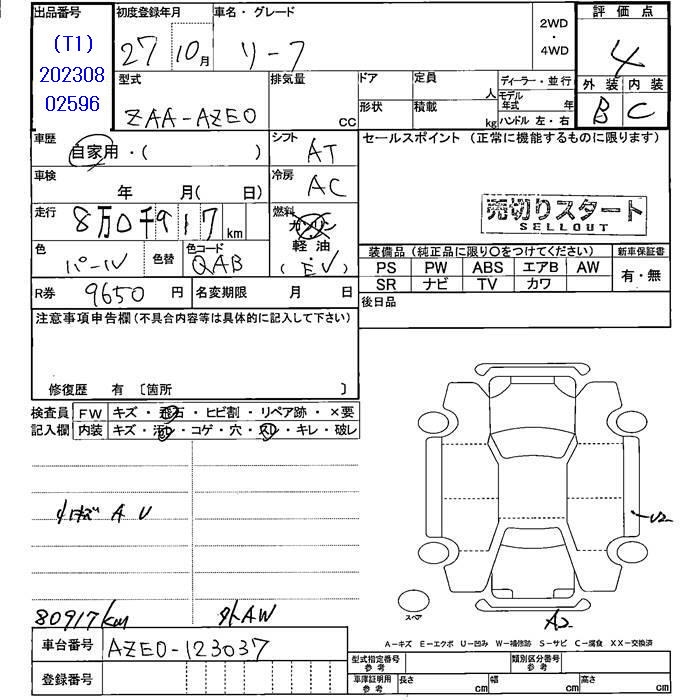 出品番号
(T1)
202308
02596
初度登録年月
27 10月
車名・グレード
リーフ
2WD
・
4WD
評価点
4
外装 内装
B C
型式
ZAA-AZE0
排気量
CC
ドア
形状
定員
人
積載
kg
ディーラー・並行
モデル
年式 年
ハンドル 左・右
車歴
自家用・( )
シフト
AT
セールスポイント (正常に機能するものに限ります)
売切りスタート
SELLOUT
車検
年 月( 日)
冷房
AC
走行
8万0千917km
燃料
ガソリン
・
軽油
・
(EV)
色
パール
色替
色コード
QAB
装備品 (純正品に限り○をつけてください)
新車保証書
PS PW ABS エアB AW
SR ナビ TV カワ
有・無
R券 9650円
名変期限 月 日
後日品
注意事項申告欄 (不具合内容等は具体的に記入して下さい)
修復歴 有 〔箇所 〕
検査員
記入欄
FW キズ・飛石・ヒビ割・リペア跡・×要
内装 キズ・汚・コゲ・穴・・キレ・破レ
A U
U2
80917km
外AW
スペア
A2
A-キズ E-エクボ U-凹み W-補修跡 S-サビ C-腐食 XX-交換済
車台番号 AZE0-123037
登録番号
型式指定番号
参考
類別区分番号
参考
車庫証明用
参考
長さ cm 幅 cm 高さ cm